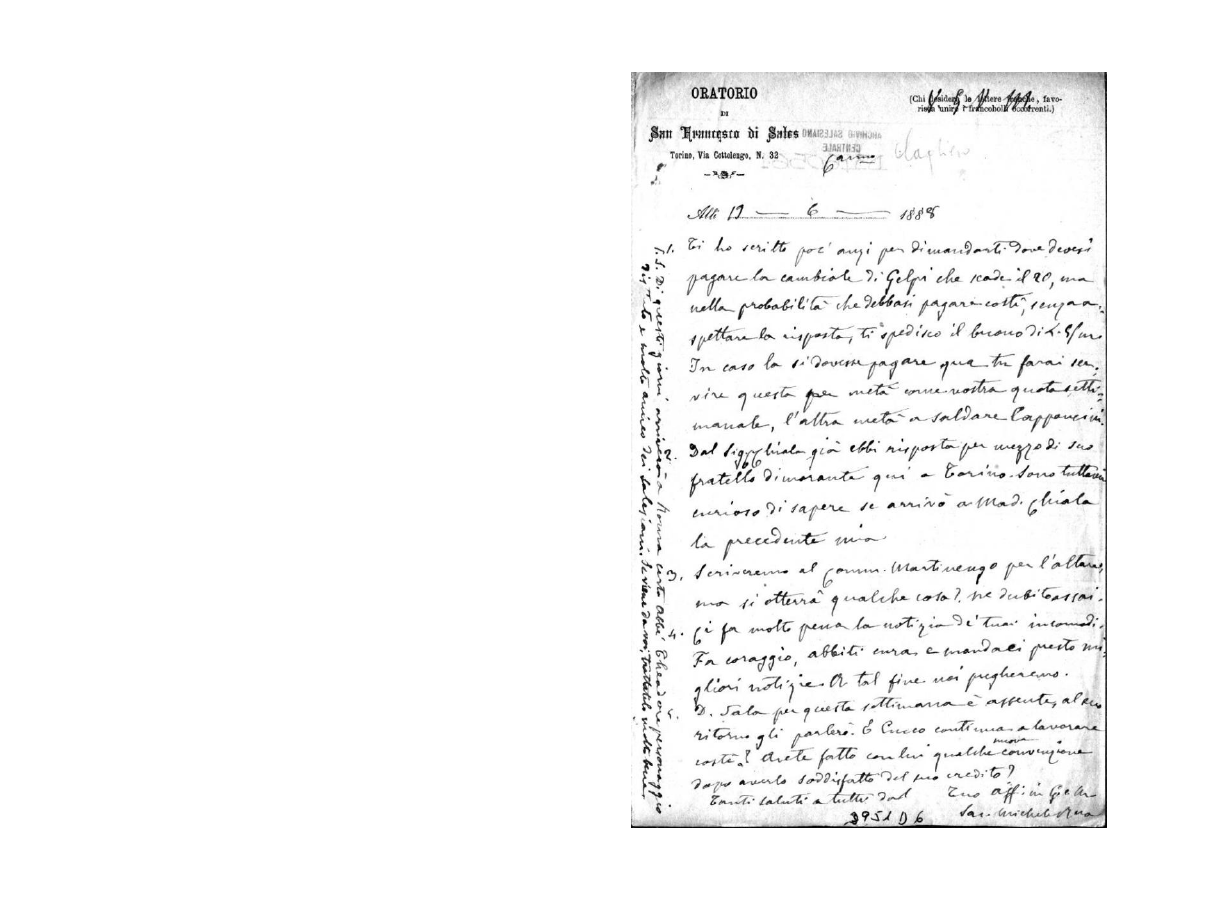 ORATORIO
DI
San Francesco di Sales
Torino, Via Cottolengo, N. 32
(Chi desidera le lettere , favo-
risca unire i francobolli occorrenti.)
ARCHIVIO SALESIANO
CENTRALE
Cagliero
Alli 19 — 6 — 1888
1. Ti ho scritto poc' anzi per dimandarti dove devesi
pagare la cambiale di Gelpi che scade il 20, ma
nella probabilità che debbasi pagare costì, senza a-
spettare la risposta, ti spedisco il buono di L.
In caso la si dovesse pagare qua tu farai ser-
vire questa per metà come vostra quota setti-
manale, l'altra metà a saldare
2. Dal Sig. Chiala già ebbi risposta per mezzo di suo
fratello dimorante qui a Torino. Sono tuttavia
curioso di sapere se arrivò a Mad. Chiala
la precedente mia
3. Scriveremo al Comm. Martinengo per l'altare,
ma si otterrà qualche cosa? ne dubito assai.
4. Ci fa molto pena la notizia de' tuoi incomodi.
Fa coraggio, abbiti cura e mandaci presto mi-
gliori notizie. A tal fine noi pregheremo.
5. D. Sala per questa settimana è assente, al suo
ritorno gli parlerò. E Cucco continua a lavorare
costì? Avete fatto con lui qualche nuova convenzione
dopo averlo soddisfatto del suo credito?
Tanti saluti a tutti dal Tuo aff. in G. e M.
Sac. Michele Rua
P.S. Di questi giorni arriverà a Roma certo Abbé personaggio
distinto e molto amico dei Salesiani. Se viene da voi, trattatelo molto bene.
3951 D 6